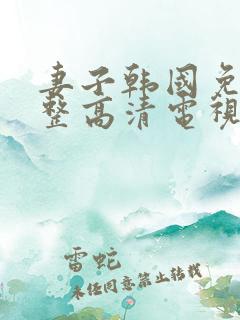 妻子韩国免
整高清電視
雷蛇
未经同意禁止转载